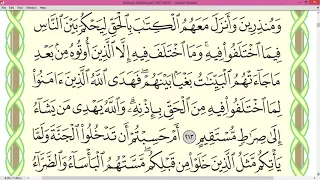 وَمُنذِرِينَ وَأَنزَلَ مَعَهُمُ ٱلْكِتَٰبَ بِٱلْحَقِّ لِيَحْكُمَ بَيْنَ ٱلنَّاسِ
فِيمَا ٱخْتَلَفُوا۟ فِيهِ ۚ وَمَا ٱخْتَلَفَ فِيهِ إِلَّا ٱلَّذِينَ أُوتُوهُ مِنۢ بَعْدِ
مَا جَآءَتْهُمُ ٱلْبَيِّنَٰتُ بَغْيًۢا بَيْنَهُمْ ۖ فَهَدَى ٱللَّهُ ٱلَّذِينَ ءَامَنُوا۟
لِمَا ٱخْتَلَفُوا۟ فِيهِ مِنَ ٱلْحَقِّ بِإِذْنِهِۦ ۗ وَٱللَّهُ يَهْدِى مَن يَشَآءُ
إِلَىٰ صِرَٰطٍ مُّسْتَقِيمٍ ٢١٣ أَمْ حَسِبْتُمْ أَن تَدْخُلُوا۟ ٱلْجَنَّةَ وَلَمَّا
يَأْتِكُم مَّثَلُ ٱلَّذِينَ خَلَوْا۟ مِن قَبْلِكُم ۖ مَّسَّتْهُمُ ٱلْبَأْسَآءُ وَٱلضَّرَّآءُ